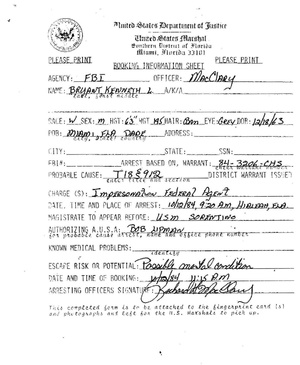 United States Department of Justice
United States Marshal
Southern District of Florida
Miami, Florida 33101
PLEASE PRINT PLEASE PRINT
BOOKING INFORMATION SHEET
AGENCY: FBI OFFICER: MacClary
NAME: BRYANT KENNETH L A/K/A
last, first middle
RACE: W SEX: M HGT: 6'3" WGT: HAIR: Brn EYE: Grey DOB: 12/18/63
POB: MIAMI FLA DADE ADDRESS:
city, state county
CITY: STATE: SSN:
FBI#: ARREST BASED ON, WARRANT: 84-3206-CMS
PROBABLE CAUSE: T18 § 912 DISTRICT WARRANT ISSUED
cite title and section
CHARGE (S): Impersonation Federal Agent
DATE, TIME AND PLACE OF ARREST: 10/10/84, 9:20 AM, HIALEAH, FLA.
MAGISTRATE TO APPEAR BEFORE: USM SORRENTINO
AUTHORIZING A.U.S.A: BOB UPMAN
for probable cause arrest, name and office phone number
KNOWN MEDICAL PROBLEMS:
identify
ESCAPE RISK OR POTENTIAL: Possible mental condition
DATE AND TIME OF BOOKING: 10/10/84 11:15 AM
ARRESTING OFFICERS SIGNATURE:
This completed form is to be attached to the fingerprint card (s)
and photographs and left for the U.S. Marshals to pick up.